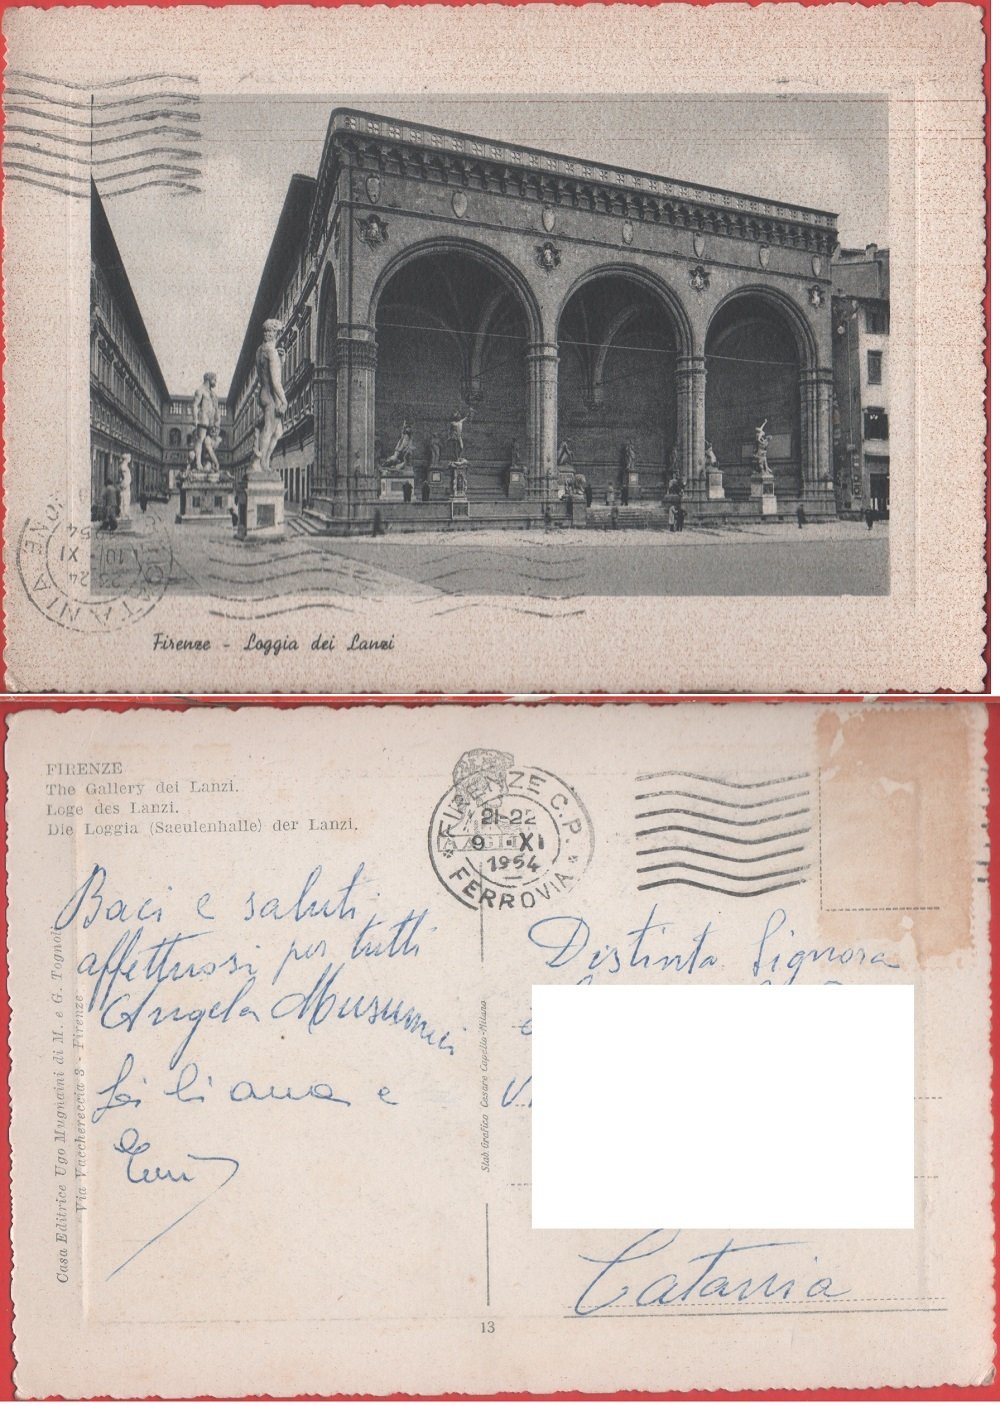 Firenze - Loggia dei Lanzi
CATANIA
23-24
10-XI
1954
FIRENZE
The Gallery dei Lanzi.
Loge des Lanzi.
Die Loggia (Saeulenhalle) der Lanzi.
FIRENZE C.P.
21-22
9 -XI
1954
FERROVIA
Baci e saluti
affettuosi per tutti
Angela Musumeci
Liliana e
Distinta Signora
Catania
Casa Editrice Ugo Mugnaini di M. e G. Tognoli
Via Vacchereccia 8 - Firenze
Stab. Grafico Cesare Capello-Milano
13